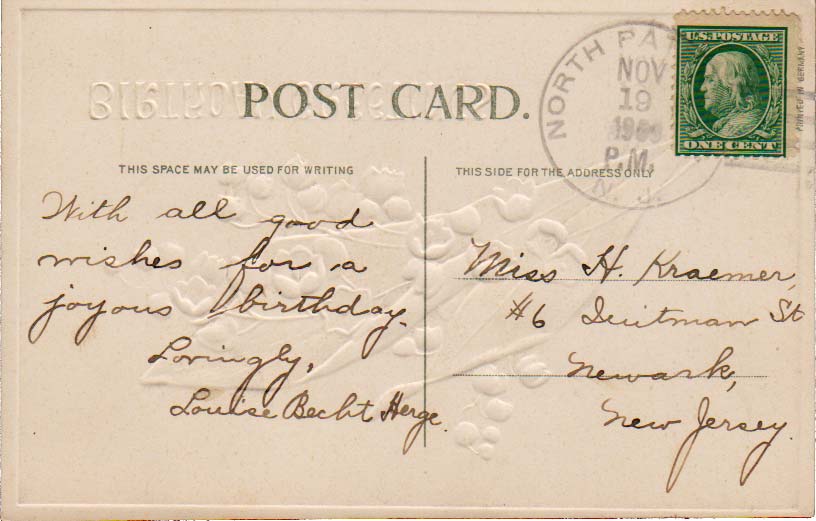 POST CARD.
THIS SPACE MAY BE USED FOR WRITING
With all good
wishes for a
joyous birthday.
Lovingly,
Louise Becht Herge.
THIS SIDE FOR THE ADDRESS ONLY
Miss H. Kraemer,
#6 St
Newark,
New Jersey.
NORTH
NOV
19
P.M.
N. J.
U.S. POSTAGE
ONE CENT
PRINTED IN GERMANY